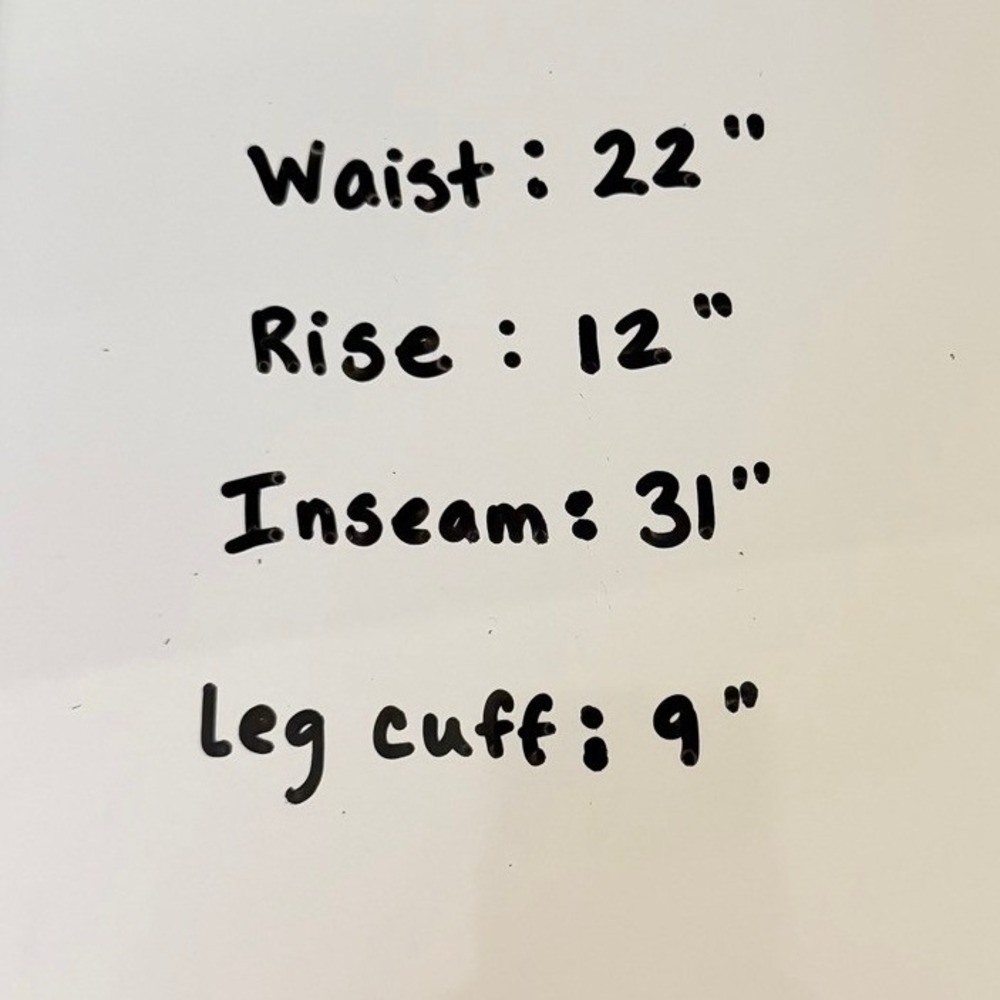 Waist : 22"
Rise : 12"
Inseam: 31"
leg cuff: 9"